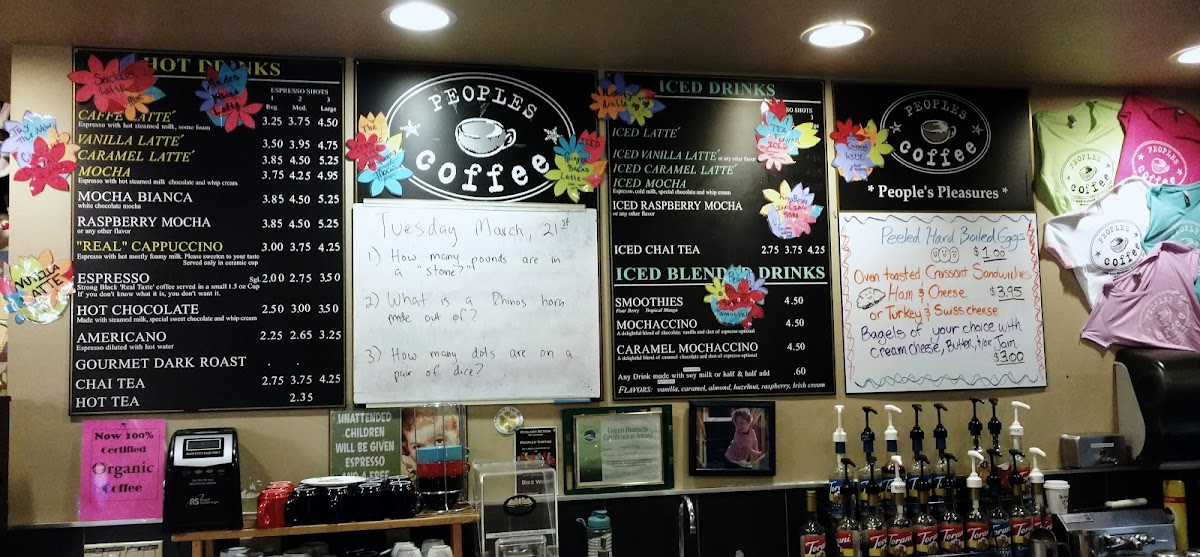 HOT DRINKS
ESPRESSO SHOTS
1 2 3
Reg. Med. Large
CAFFE LATTE´ 3.25 3.75 4.50
Espresso with hot steamed milk, some foam
VANILLA LATTE´ 3.50 3.95 4.75
CARAMEL LATTE´ 3.85 4.50 5.25
MOCHA 3.75 4.25 4.95
Espresso with hot steamed milk chocolate and whip cream
MOCHA BIANCA 3.85 4.50 5.25
white chocolate mocha
RASPBERRY MOCHA 3.85 4.50 5.25
or any other flavor
"REAL" CAPPUCCINO 3.00 3.75 4.25
Espresso with hot mostly foamy milk. Please sweeten to your taste
Served only in ceramic cup
ESPRESSO Sgl. 2.00 2.75 3.50
Strong Black 'Real Taste' coffee served in a small 1.5 oz Cup
If you don't know what it is, you don't want it.
HOT CHOCOLATE 2.50 3.00 3.50
Made with steamed milk, special sweet chocolate and whip cream
AMERICANO 2.25 2.65 3.25
Espresso diluted with hot water
GOURMET DARK ROAST
CHAI TEA 2.75 3.75 4.25
HOT TEA 2.35
PEOPLES
coffee
Tuesday March, 21st
1) How many pounds are in
a "stone?"
2) What is a Rhinos horn
made out of?
3) How many dots are on a
pair of dice?
ICED DRINKS
SHOTS
ICED LATTE´
ICED VANILLA LATTE´ or any other flavor
ICED CARAMEL LATTE´
ICED MOCHA
Espresso, cold milk, special chocolate and whip cream
ICED RASPBERRY MOCHA
or any other flavor
ICED CHAI TEA 2.75 3.75 4.25
ICED BLENDED DRINKS
SMOOTHIES 4.50
Four Berry Tropical Mango
MOCHACCINO 4.50
A delightful blend of chocolate vanilla and shot of espresso optional
CARAMEL MOCHACCINO 4.50
A delightful blend of caramel chocolate and shot of espresso optional
Any Drink made with soy milk or half & half add .60
FLAVORS: vanilla, caramel, almond, hazelnut, raspberry, Irish cream
PEOPLES
coffee
* People's Pleasures *
Peeled Hard Boiled Eggs
$1.00
Oven toasted Croissant Sandwiches
Ham & Cheese $3.95
or Turkey & Swiss cheese
Bagels of your choice with
cream cheese, Butter, &/or Jam
$3.00
PEOPLES
coffee
PEOPLES
coffee
PEOPLES
coffee
Now 100%
Certified
Organic
Coffee
UNATTENDED
CHILDREN
WILL BE GIVEN
ESPRESSO
AND A FREE
Torani
Torani
Torani
Torani